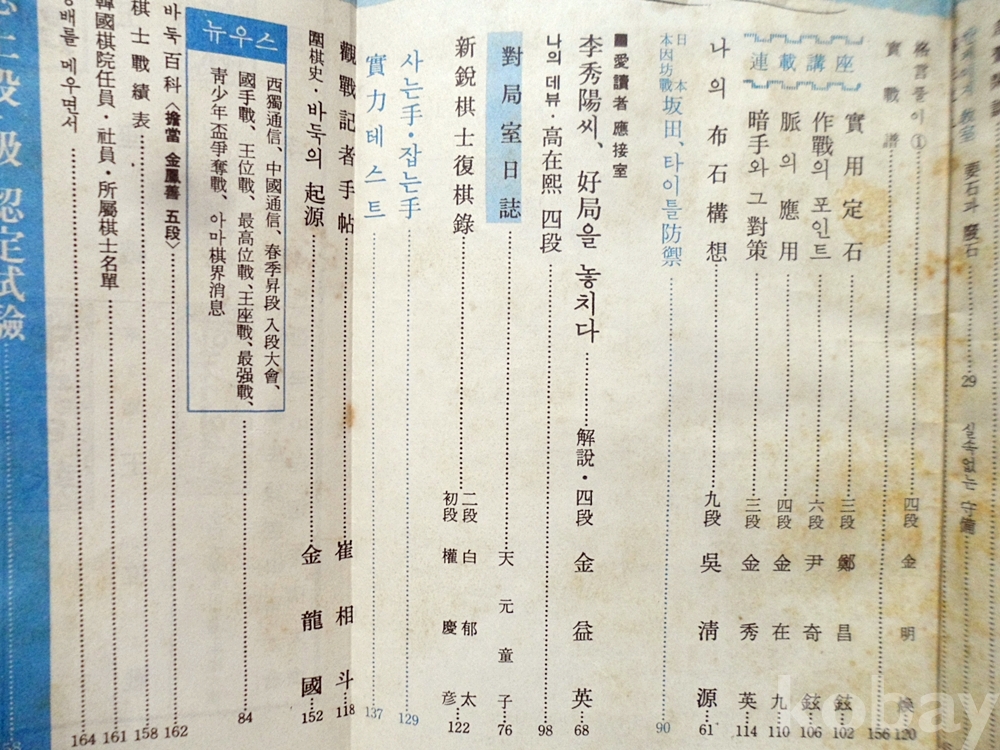 要石과 廢石 29
실속없는 守備
格言풀이 ① 四段 金明煥 120
實戰譜 156
連載講座
實用定石 三段 鄭昌鉉 102
作戰의 포인트 六段 尹奇鉉 106
脈의 應用 四段 金在九 110
暗手와 그 對策 三段 金秀英 114
나의 布石構想 九段 吳淸源 61
日本
本因坊戰 坂田, 타이틀防禦 90
■愛讀者 應接室
李秀陽씨, 好局을 놓치다 解說・四段 金益英 68
나의 데뷰・高在熙 四段 98
對局室日誌 天元童子 76
新銳棋士復棋錄 二段 白郁太
初段 權慶彦 122
사는手・잡는手 129
實力테스트 137
觀戰記者手帖 崔相斗 118
圍棋史・바둑의 起源 金龍國 152
뉴우스
西獨通信、中國通信、春季昇段 入段大會、
國手戰、王位戰、最高位戰、王座戰、最强戰、
靑少年盃爭奪戰、아마棋界消息
84
바둑百科〈擔當 金鳳善 五段〉 162
棋士戰績表 158
韓國棋院任員・社員・所屬棋士名單 161
배를 메우면서 164
段・級 認定試驗
kobay